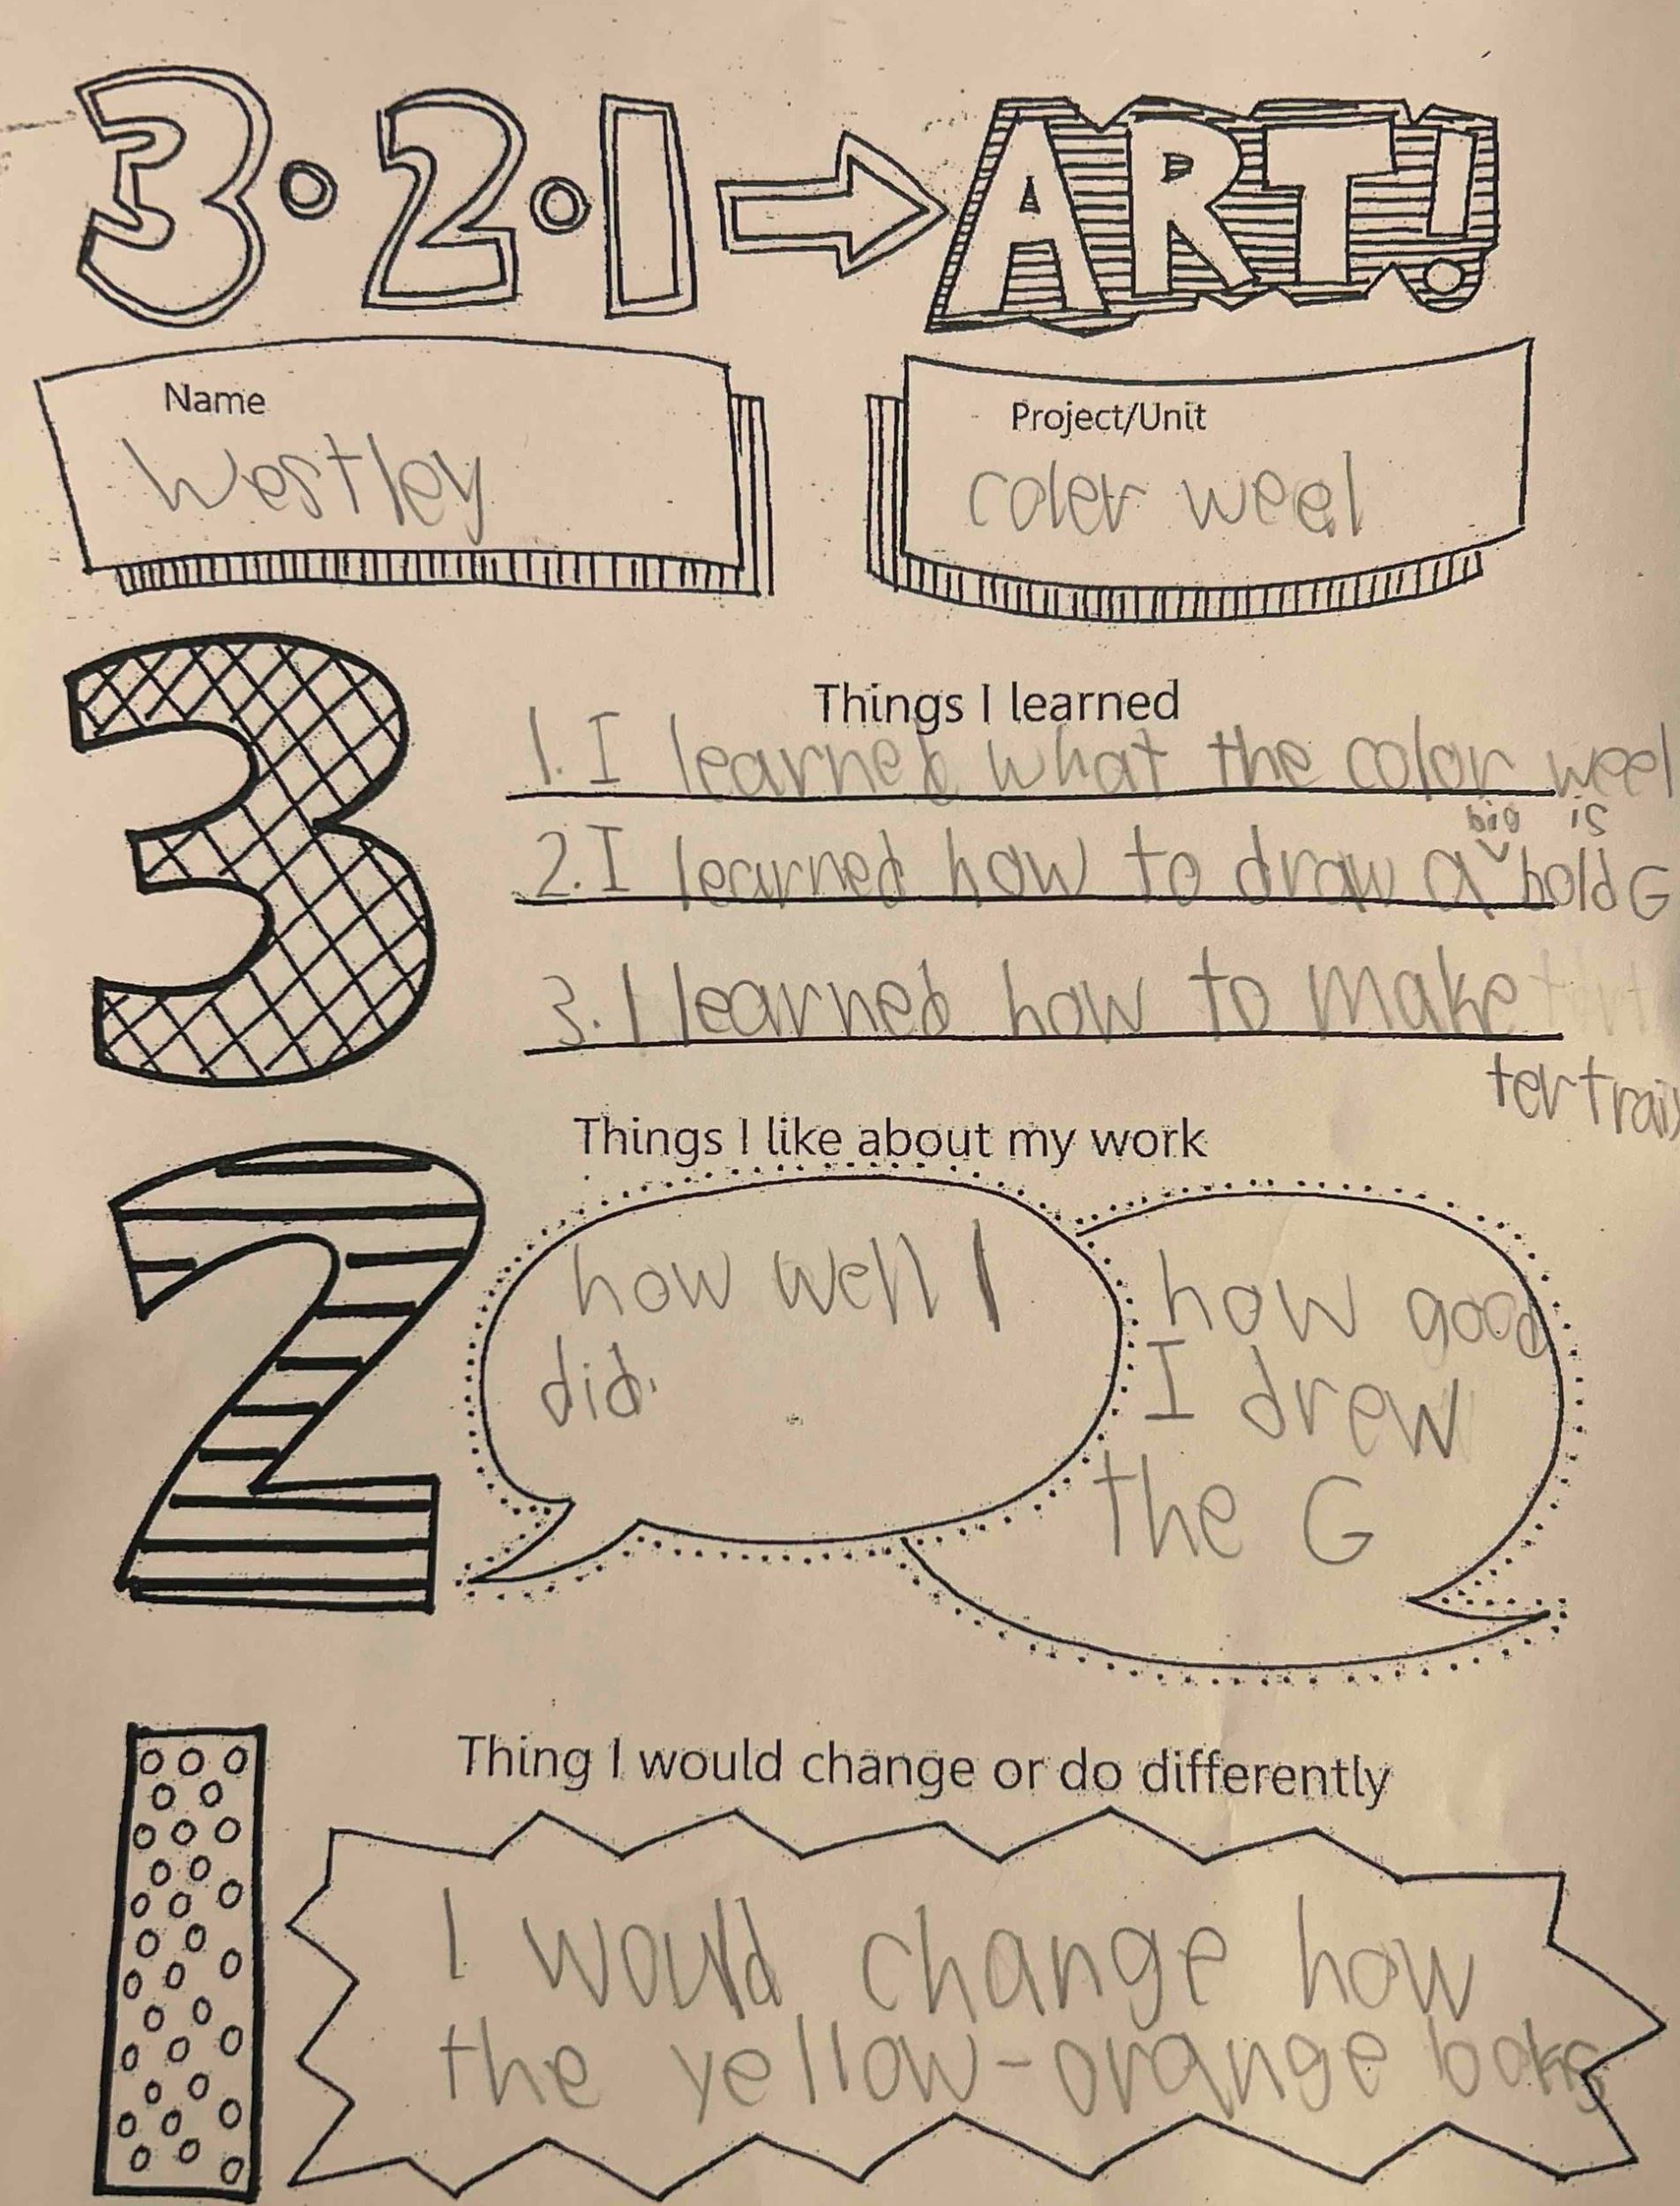 3·2·1 → ART!
Name
Westley
Project/Unit
coler weel
3
Things I learned
1. I learned what the color weel
is
2. I learned how to draw a big bold G
3. I learned how to make
tertrain
2
Things I like about my work
how well I
did.
how good
I drew
the G
1
Thing I would change or do differently
I would change how
the yellow-orange looks